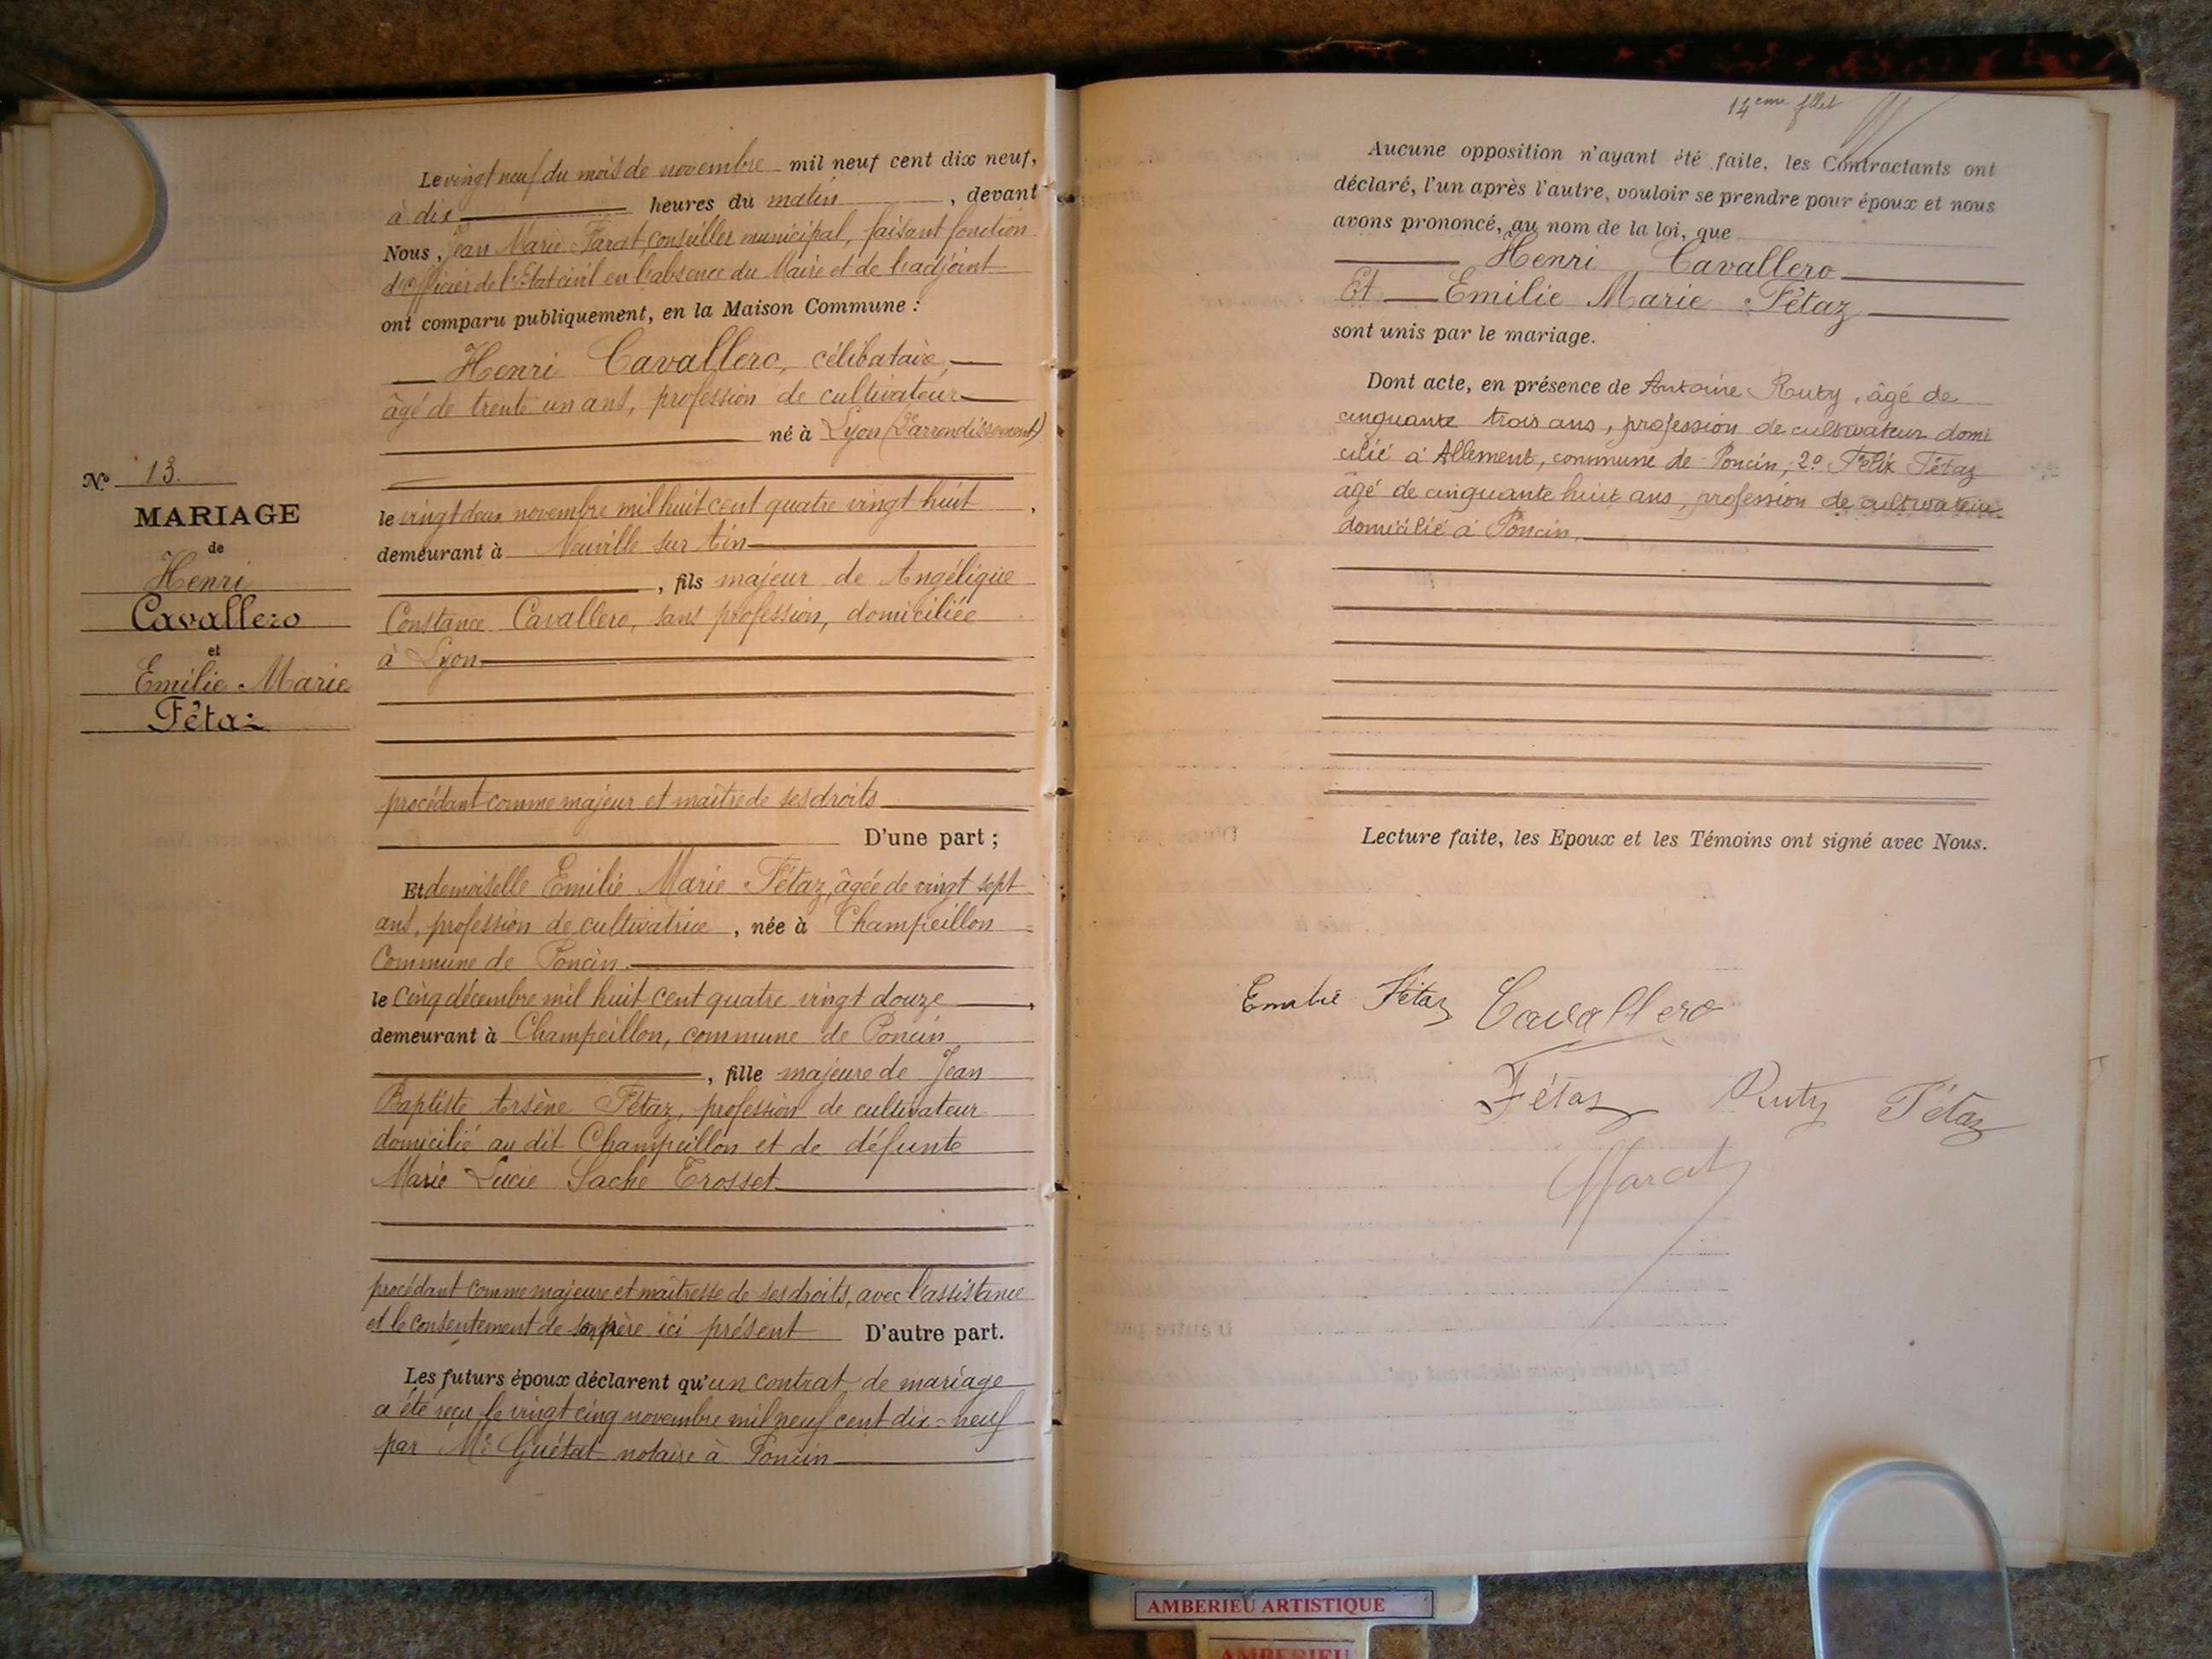 N° 13.
MARIAGE
de
Henri
Cavallero
et
Emilie Marie
Fétaz
Le vingt neuf du mois de novembre mil neuf cent dix neuf,
à dix heures du matin, devant
Nous, Jean Marie Farat, conseiller municipal, faisant fonction
d'Officier de l'Etat civil en l'absence du Maire et de l'adjoint
ont comparu publiquement, en la Maison Commune :
Henri Cavallero, célibataire,
âgé de trente un ans, profession de cultivateur
né à Lyon (2e arrondissement)
le vingt deux novembre mil huit cent quatre vingt huit,
demeurant à Neuville sur Ain
, fils majeur de Angélique
Constance Cavallero, sans profession, domiciliée
à Lyon
procédant comme majeur et maître de ses droits
D'une part ;
Et demoiselle Emilie Marie Fétaz, âgée de vingt sept
ans, profession de cultivatrice, née à Champeillon
Commune de Poncin.
le cinq décembre mil huit cent quatre vingt douze,
demeurant à Champeillon, commune de Poncin
, fille majeure de Jean
Baptiste Arsène Fétaz, profession de cultivateur
domicilié au dit Champeillon et de défunte
Marie Lucie Sache Trosset
procédant comme majeure et maîtresse de ses droits, avec l'assistance
et le consentement de son père ici présent D'autre part.
Les futurs époux déclarent qu'un contrat de mariage
a été reçu le vingt cinq novembre mil neuf cent dix-neuf
par Me Guétat notaire à Poncin
14eme fllet
Aucune opposition n'ayant été faite, les Contractants ont
déclaré, l'un après l'autre, vouloir se prendre pour époux et nous
avons prononcé, au nom de la loi, que
Henri Cavallero
Et Emilie Marie Fétaz
sont unis par le mariage.
Dont acte, en présence de Antoine Ruty, âgé de
cinquante trois ans, profession de cultivateur domi
cilié à Allement, commune de Poncin, 2° Félix Fétaz
âgé de cinquante huit ans, profession de cultivateur
domicilié à Poncin.
Lecture faite, les Epoux et les Témoins ont signé avec Nous.
Emilie Fétaz Cavallero
Fétaz Ruty Fétaz
AMBERIEU ARTISTIQUE
AMBERIEU